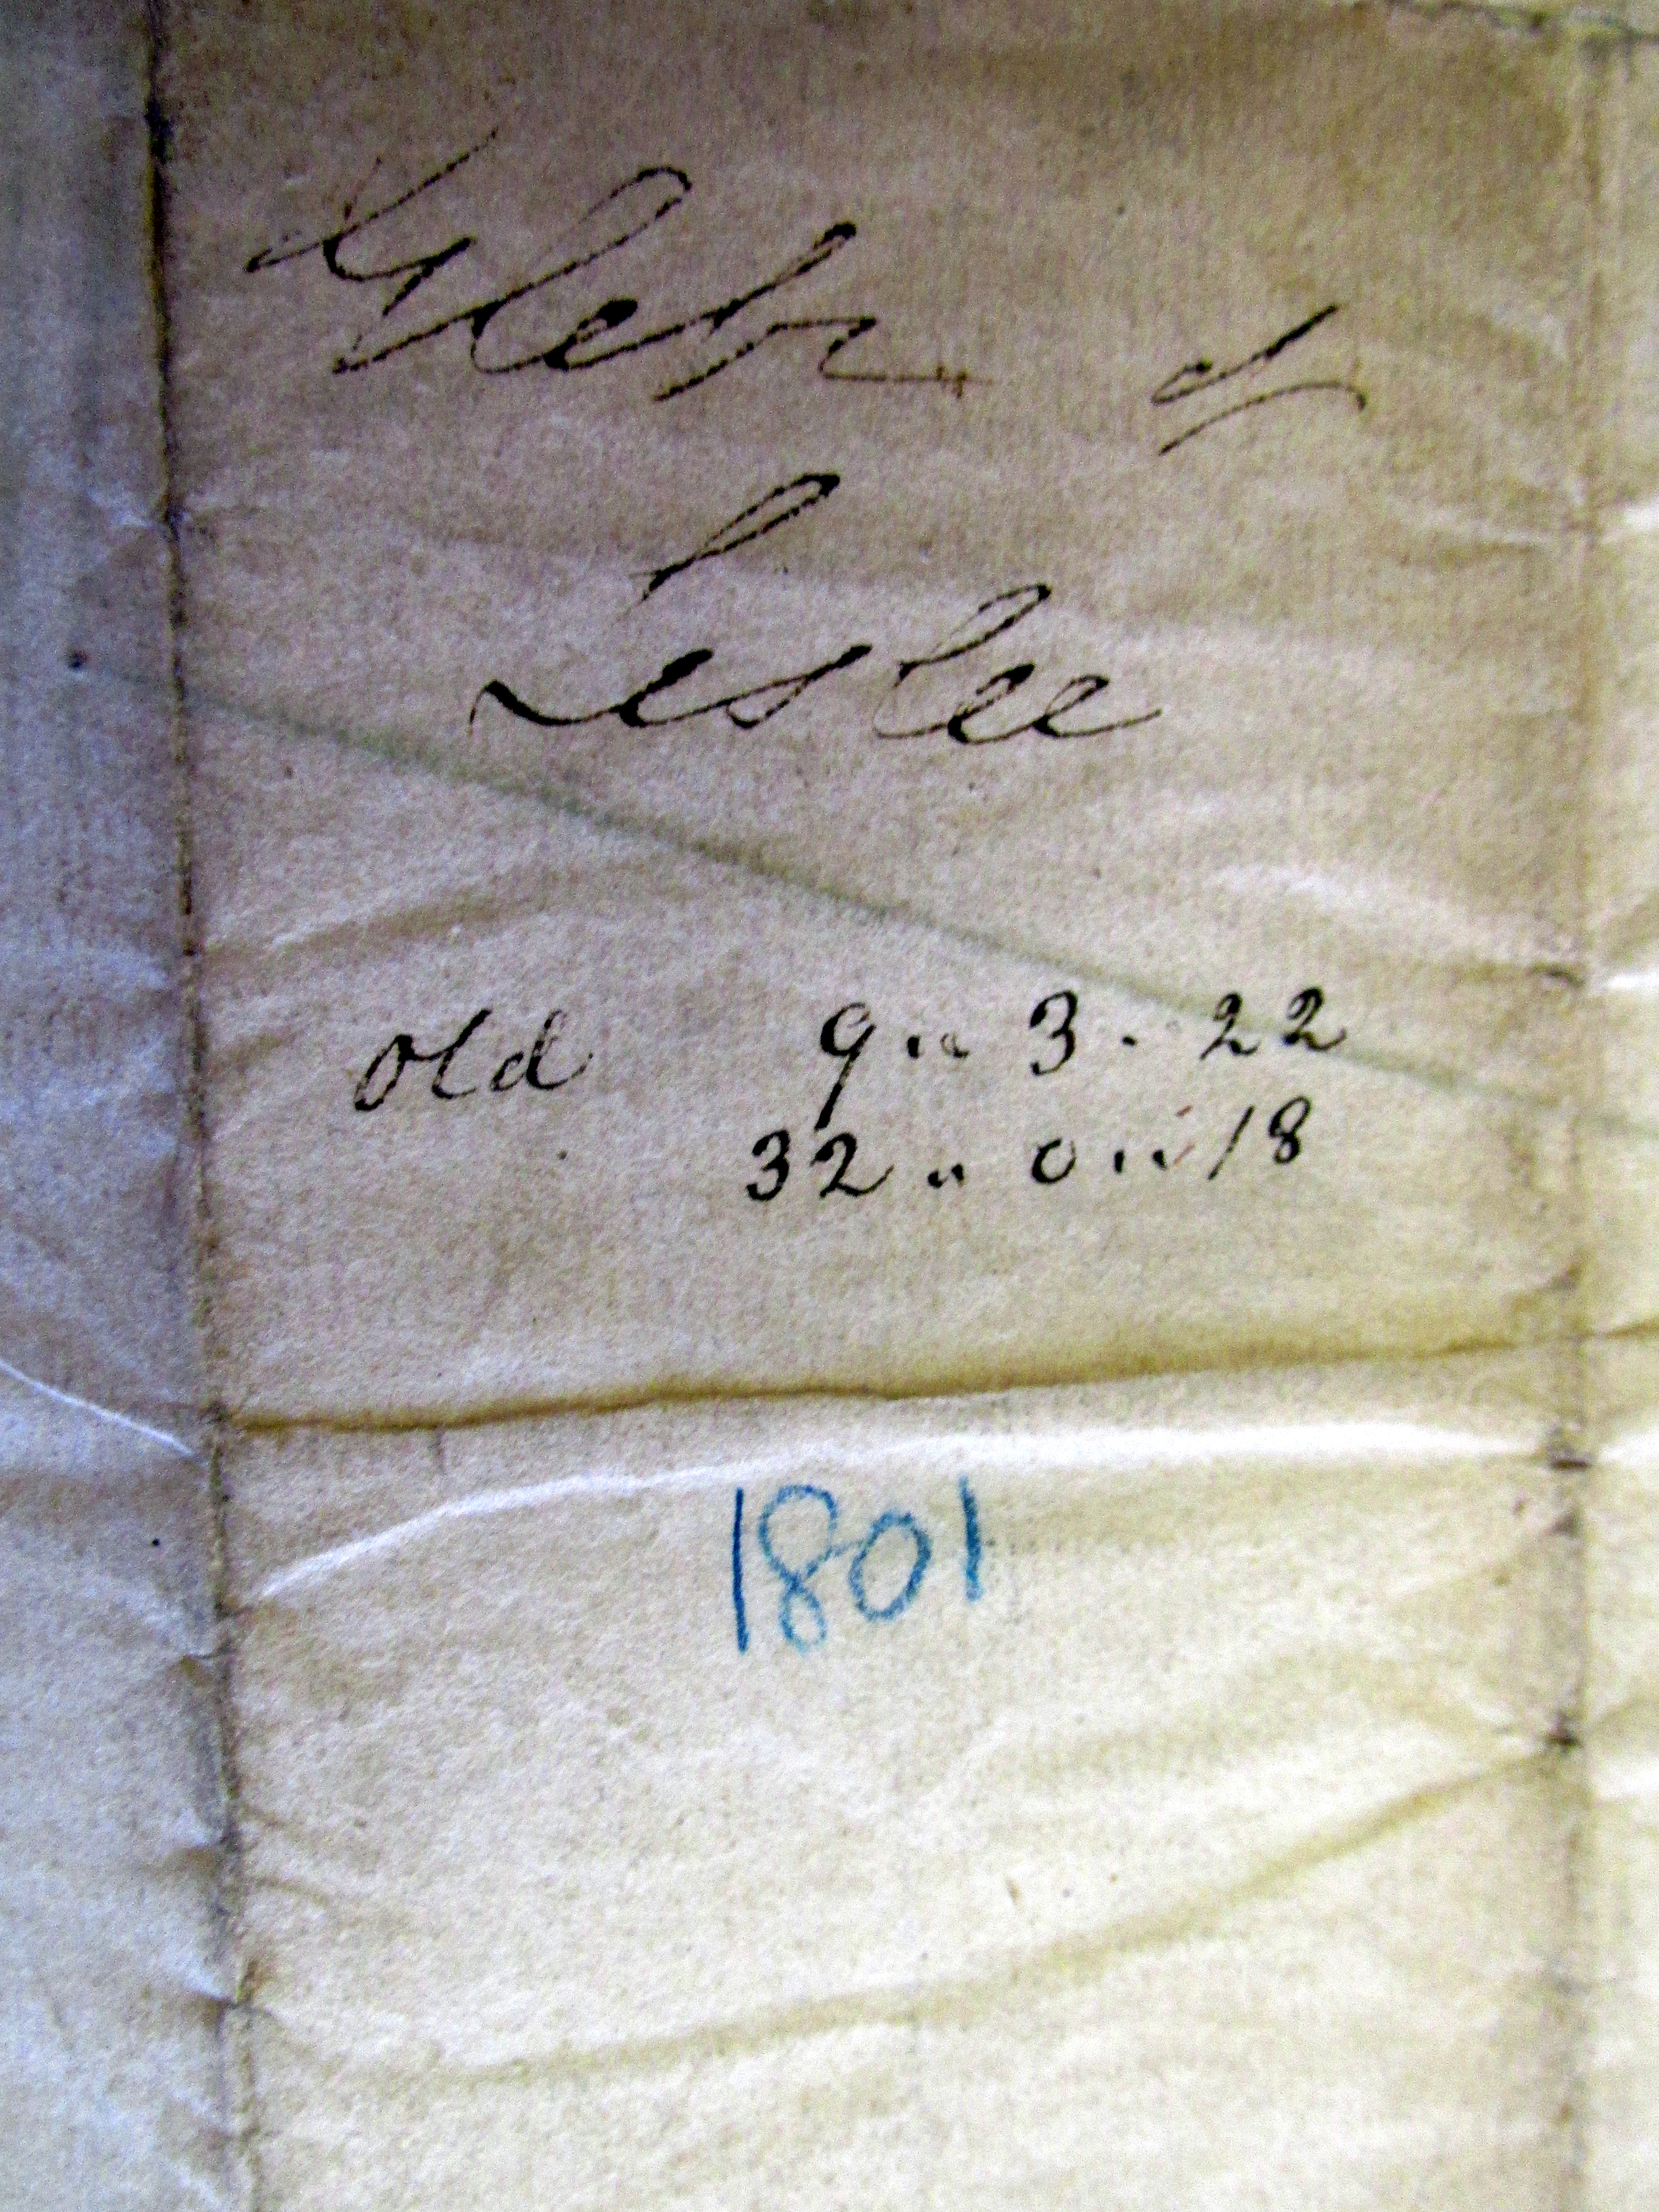 Glebe of
Leslee
Old 9 .. 3 . 22
32 .. 0 .. 18
1801